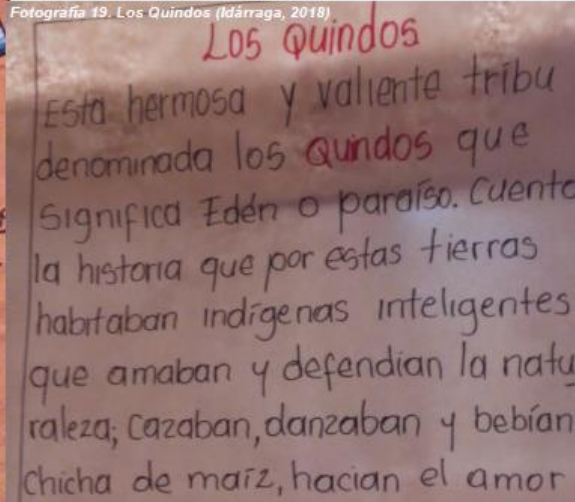 Fotografía 19. Los Quindos (Idárraga, 2018)
Los Quindos
Esta hermosa y valiente tribu
denominada los Qundos que
significa Edén o paraíso. Cuenta
la historia que por estas tierras
habitaban indígenas inteligentes
que amaban y defendian la natu
raleza; cazaban, danzaban y bebían
chicha de maíz, hacian el amor